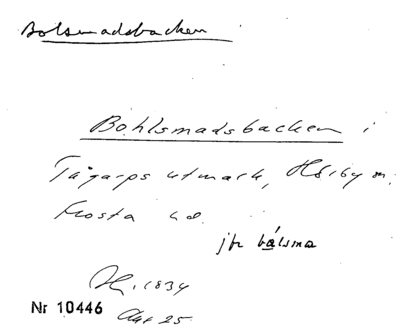 Bolsmadsbacken
Bohlsmadsbacken i
Tågarps utmark, Hörby sn.
Frosta hd.
jfr bålsma
1834
Nr 10446
Akt 25